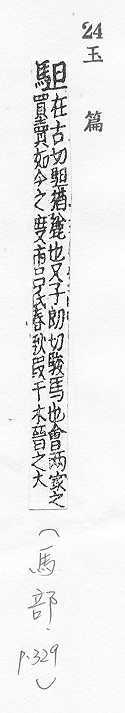 24
玉 篇
駔 在古切駔猶麤也又子朗切駿馬也會兩家之
買賣如今之度市呂氏春秋段干木晉之大
(馬部. p.329)